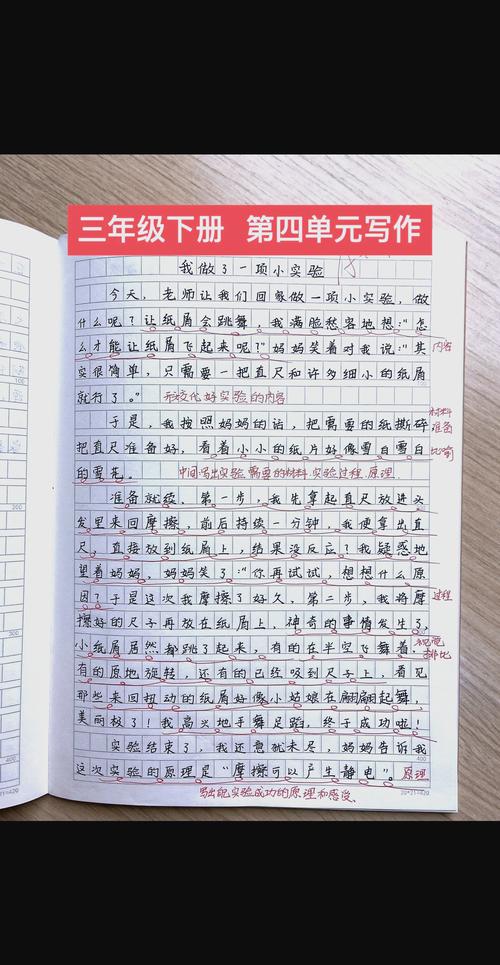 三年级下册 第四单元写作
我做了一项小实验
今天，老师让我们回家做一项小实验，做
什么呢？让纸屑会跳舞，我满脸愁容地想："怎
么才能让纸屑飞起来呢？"妈妈笑着对我说："其
内容
实很简单，只需要一把直尺和许多细小的纸屑
就行了。"
形象化好实验的内容
于是，我按照妈妈的话，把需要的纸撕碎
材料
准备
把直尺准备好，看着小小的纸片好像雪白雪白
比喻
的雪花。
中间写出实验需要的材料、实验过程、原理
准备就绪，第一步，我先拿起直尺放进头
发里来回摩擦，前后持续一分钟，我便拿出直
尺，直接放到纸屑上，结果没反应？我疑惑地
望着妈妈，妈妈笑了："你再试试，想想什么原
因？于是这次我摩擦了好久，第二步，我将摩
过程
擦好的尺子再放在纸屑上，神奇的事情发生了，
小纸屑居然都跳了起来，有的在半空飞舞着，
视觉
排比
有的原地旋转，还有的已经吸到尺子上，看见
那些来回扭动的纸屑好像小姑娘在翩翩起舞，
美丽极了！我高兴地手舞足蹈，终于成功啦！
实验结束了，我还意犹未尽，妈妈告诉我
400
这次实验的原理是"摩擦可以产生静电"。
原理
20×21=420
写出能实验成功的原理和感受、